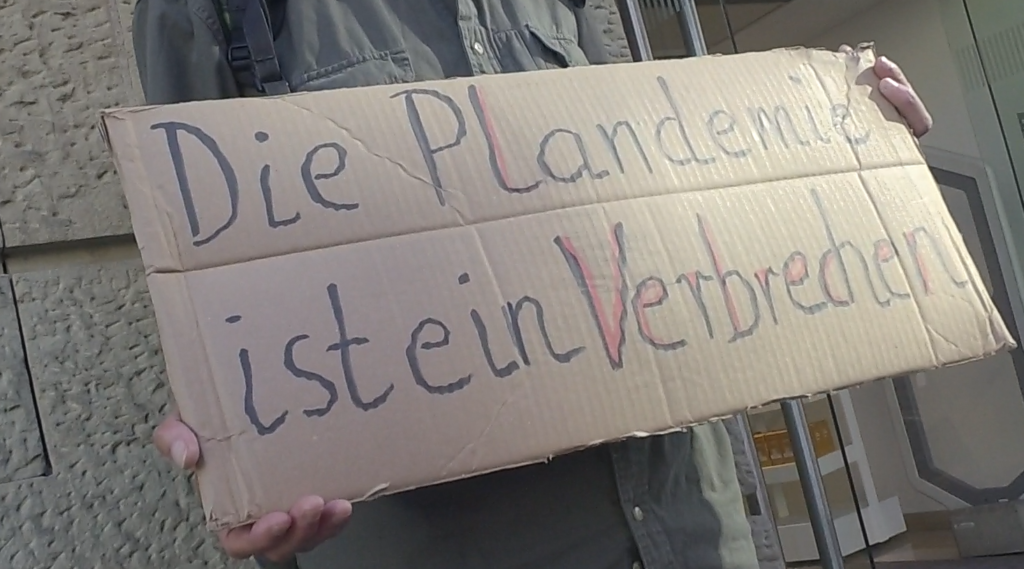 Die Plandemie
ist ein Verbrechen